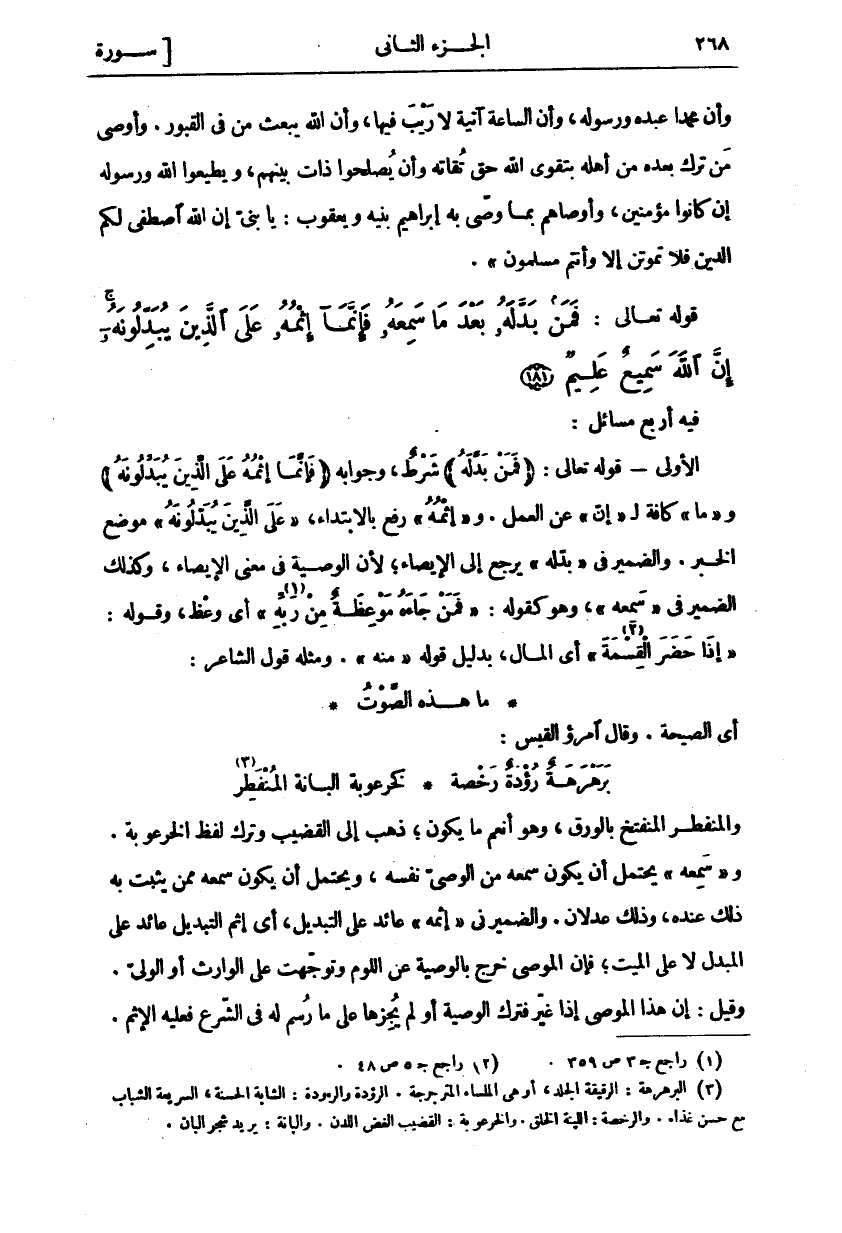 ٢٦٨ الجـــزء الثـانى [ ســـورة
وأن محمدا عبده ورسوله، وأن الساعة آتية لا رَيْبَ فيها، وأن الله يبعث من فى القبور . وأوصى
مَن ترك بعده من أهله بتقوى الله حق تُقاته وأن يُصلحوا ذات بينهم، ويطيعوا الله ورسوله
إن كانوا مؤمنين، وأوصاهم بمـا وصّى به إبراهيم بنيه ويعقوب : يا بنىّ إن الله آصطفى لكم
الدين فلا تموتن إلا وأنتم مسلمون » .
قوله تعـالى : فَمَنۢ بَدَّلَهُۥ بَعْدَ مَا سَمِعَهُۥ فَإِنَّمَـآ إِثْمُهُۥ عَلَى ٱلَّذِينَ يُبَدِّلُونَهُۥٓۚ
إِنَّ ٱللَّهَ سَمِيعٌ عَلِـيمٌ ﴿١٨١﴾
فيه أربع مسائل :
الأولى — قوله تعالى : ﴿ فَمَنْ بَدَّلَهُ ﴾ شَرْطٌ، وجوابه ﴿ فَإِنَّمَـا إِثْمُهُ عَلَى الَّذِينَ يُبَدِّلُونَهُ ﴾
و « ما » كافة لـ « إنّ » عن العمل . و « إِثْمُهُ » رفع بالابتداء، « عَلَى الَّذِينَ يُبَدِّلُونَهُ » موضع
الخـبر . والضمير فى « بدّله » يرجع إلى الإيصاء؛ لأن الوصـية فى معنى الإيصاء، وكذلك
الضمير فى « سَمِعه »، وهو كقوله : « فَمَنْ جَاءَهُ مَوْعِظَـةٌ مِنْ رَبِّهِ (١) » أى وعْظ، وقـوله :
« إِذَا حَضَرَ الْقِسْمَةَ (٢) » أى المـال، بدليل قوله « منه » . ومثله قول الشاعر :
* ما هـــذه الصَّوْتُ *
أى الصيحة . وقال آمرؤ القيس :
بَرَهْرَهَـةٌ رُؤْدَةٌ رَخْصة * كخرعوبة البـانة المُنْفَطِر (٣)
والمنفطـر المنتفخ بالورق، وهو أنعم ما يكون؛ ذهب إلى القضيب وترك لفظ الخرعوبة .
و « سَمِعه » يحتمل أن يكون سمعه من الوصىّ نفسه، ويحتمل أن يكون سمعه ممن يثبت به
ذلك عنده، وذلك عدلان . والضمير فى « إثمه » عائد على التبديل، أى إثم التبديل عائد على
المبدل لا على الميت؛ فإن الموصى خرج بالوصية عن اللوم وتوجّهت على الوارث أو الولىّ .
وقيل : إن هذا الموصى إذا غيّر فترك الوصية أو لم يُجِزها على ما رُسم له فى الشّرع فعليه الإثم .
(١) راجع جـ ٣ ص ٣٥٩ . (٢) راجع جـ ٥ ص ٤٨ .
(٣) البرهرهة : الرقيقة الجلد، أو هى الملساء المترجرجة . الرؤدة والرءودة : الشابة الحسنة، السريعة الشباب
مع حسن غذاء . والرخصة : اللينة الخلق . والخرعوبة : القضيب الغض اللدن . والبانة : يريد شجر البان .